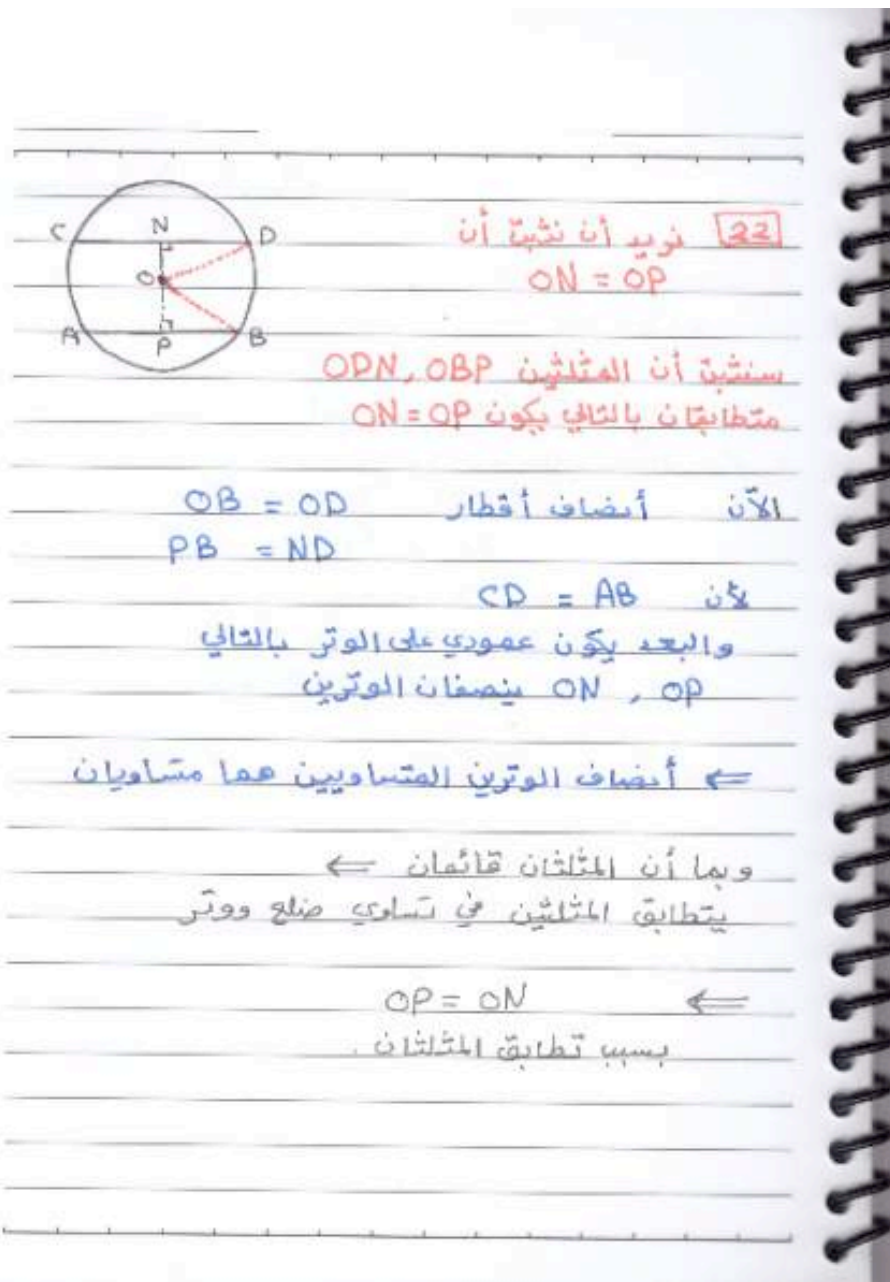 22 نريد أن نثبت أن
ON = OP
C N D
O
A P B
سنثبت أن المثلثين ODN, OBP
متطابقان بالتالي يكون ON = OP
الآن أنصاف أقطار OB = OD
PB = ND
لأن CD = AB
والبعد يكون عمودي على الوتر بالتالي
ON , OP ينصفان الوترين
⇐ أنصاف الوترين المتساويين هما متساويان
وبما أن المثلثان قائمان ⇐
يتطابق المثلثين في تساوي ضلع ووتر
⇐ OP = ON
بسبب تطابق المثلثان .